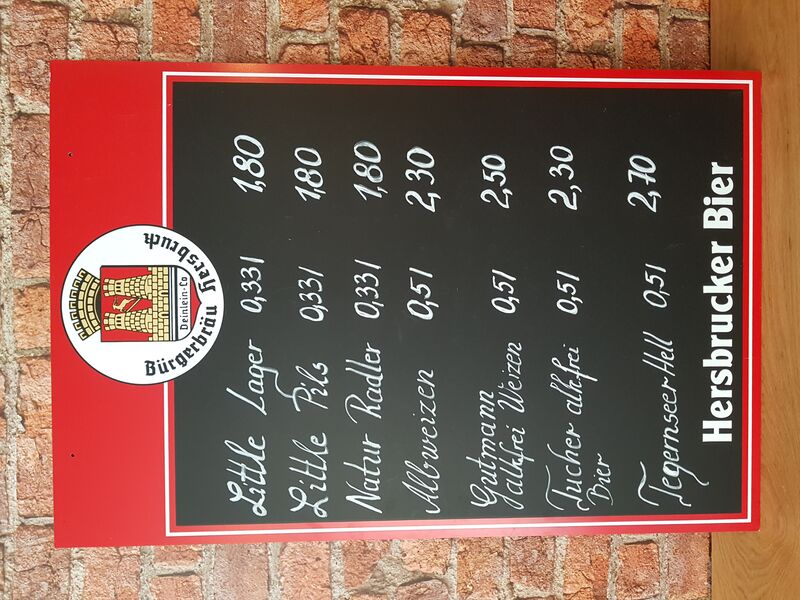 Bürgerbräu Hersbruck
Deinlein-Co
Little Lager 0,33l 1,80
Little Pils 0,33l 1,80
Natur Radler 0,33l 1,80
Albweizen 0,5l 2,30
Gutmann
alkfrei Weizen 0,5l 2,50
Tucher alk.frei 0,5l 2,30
Bier
Tegernseer Hell 0,5l 2,70
Hersbrucker Bier